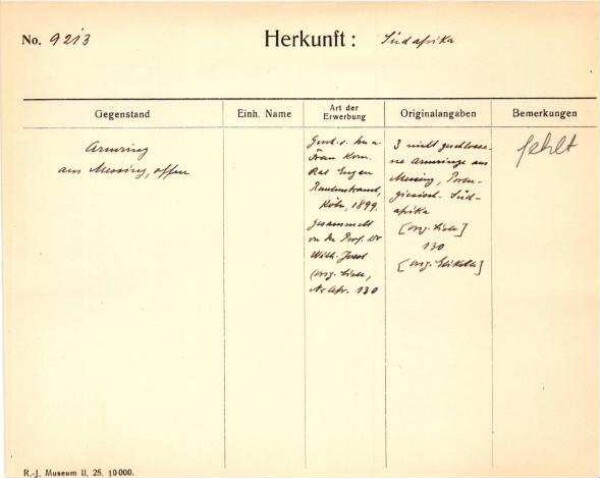 No. 9213 Herkunft: Südafrika
Gegenstand
Einh. Name
Art der
Erwerbung
Originalangaben
Bemerkungen
Armring
aus Messing, offen
Gesch. v. Herrn u.
Frau Kom.
Rat Eugen
Rautenstrauch,
Köln, 1899.
Gesammelt
von Prof. Dr
Wilh. Joest
(orig. Liste,
Nr. Afr. 130
3 nicht geschlosse-
ne Armringe aus
Messing, Portu-
giesisch. Süd-
afrika
[orig. Liste]
130
[orig. Etikette]
fehlt
R.-J. Museum II, 25. 10000.